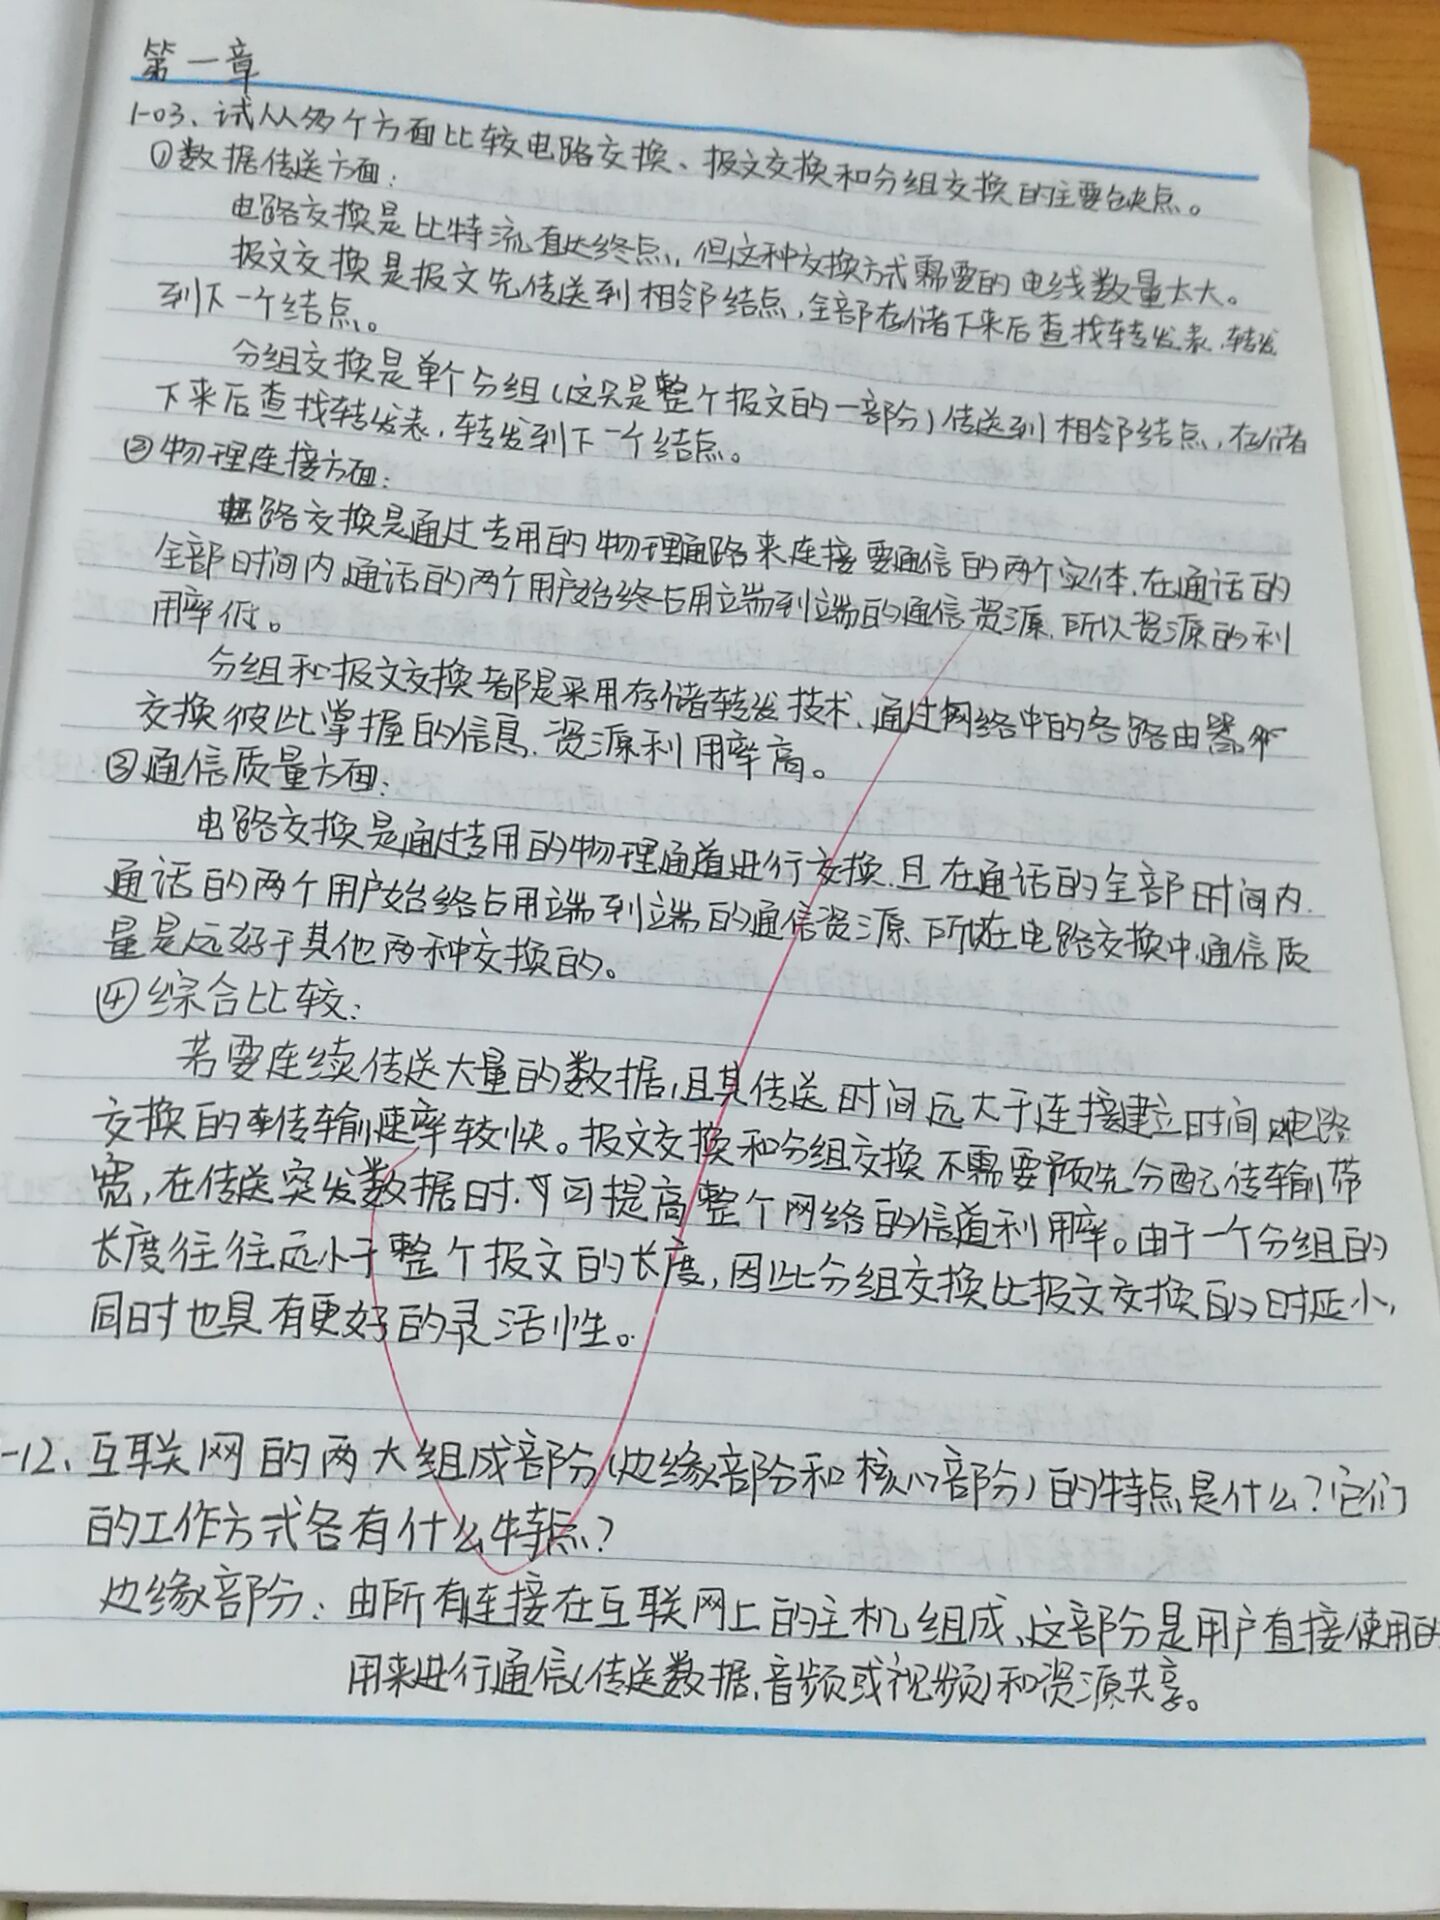 第一章
1-03、试从多个方面比较电路交换、报文交换和分组交换的主要优缺点。
①数据传送方面:
电路交换是比特流直达终点,但这种交换方式需要的电线数量太大。
报文交换是报文先传送到相邻结点,全部存储下来后查找转发表,转发
到下一个结点。
分组交换是单个分组(这只是整个报文的一部分)传送到相邻结点,存储
下来后查找转发表,转发到下一个结点。
②物理连接方面:
电路交换是通过专用的物理通路来连接要通信的两个实体,在通话的
全部时间内,通话的两个用户始终占用端到端的通信资源,所以资源的利
用率低。
分组和报文交换都是采用存储转发技术,通过网络中的各路由器
交换彼此掌握的信息,资源利用率高。
③通信质量方面:
电路交换是通过专用的物理通道进行交换,且在通话的全部时间内,
通话的两个用户始终占用端到端的通信资源,所以在电路交换中,通信质
量是远好于其他两种交换的。
④综合比较:
若要连续传送大量的数据,且其传送时间远大于连接建立时间,电路
交换的传输速率较快。报文交换和分组交换不需要预先分配传输带
宽,在传送突发数据时,可提高整个网络的信道利用率。由于一个分组的
长度往往远小于整个报文的长度,因此分组交换比报文交换的时延小,
同时也具有更好的灵活性。
-12、互联网的两大组成部分(边缘部分和核心部分)的特点是什么?它们
的工作方式各有什么特点?
边缘部分:由所有连接在互联网上的主机组成,这部分是用户直接使用的
用来进行通信(传送数据,音频或视频)和资源共享。